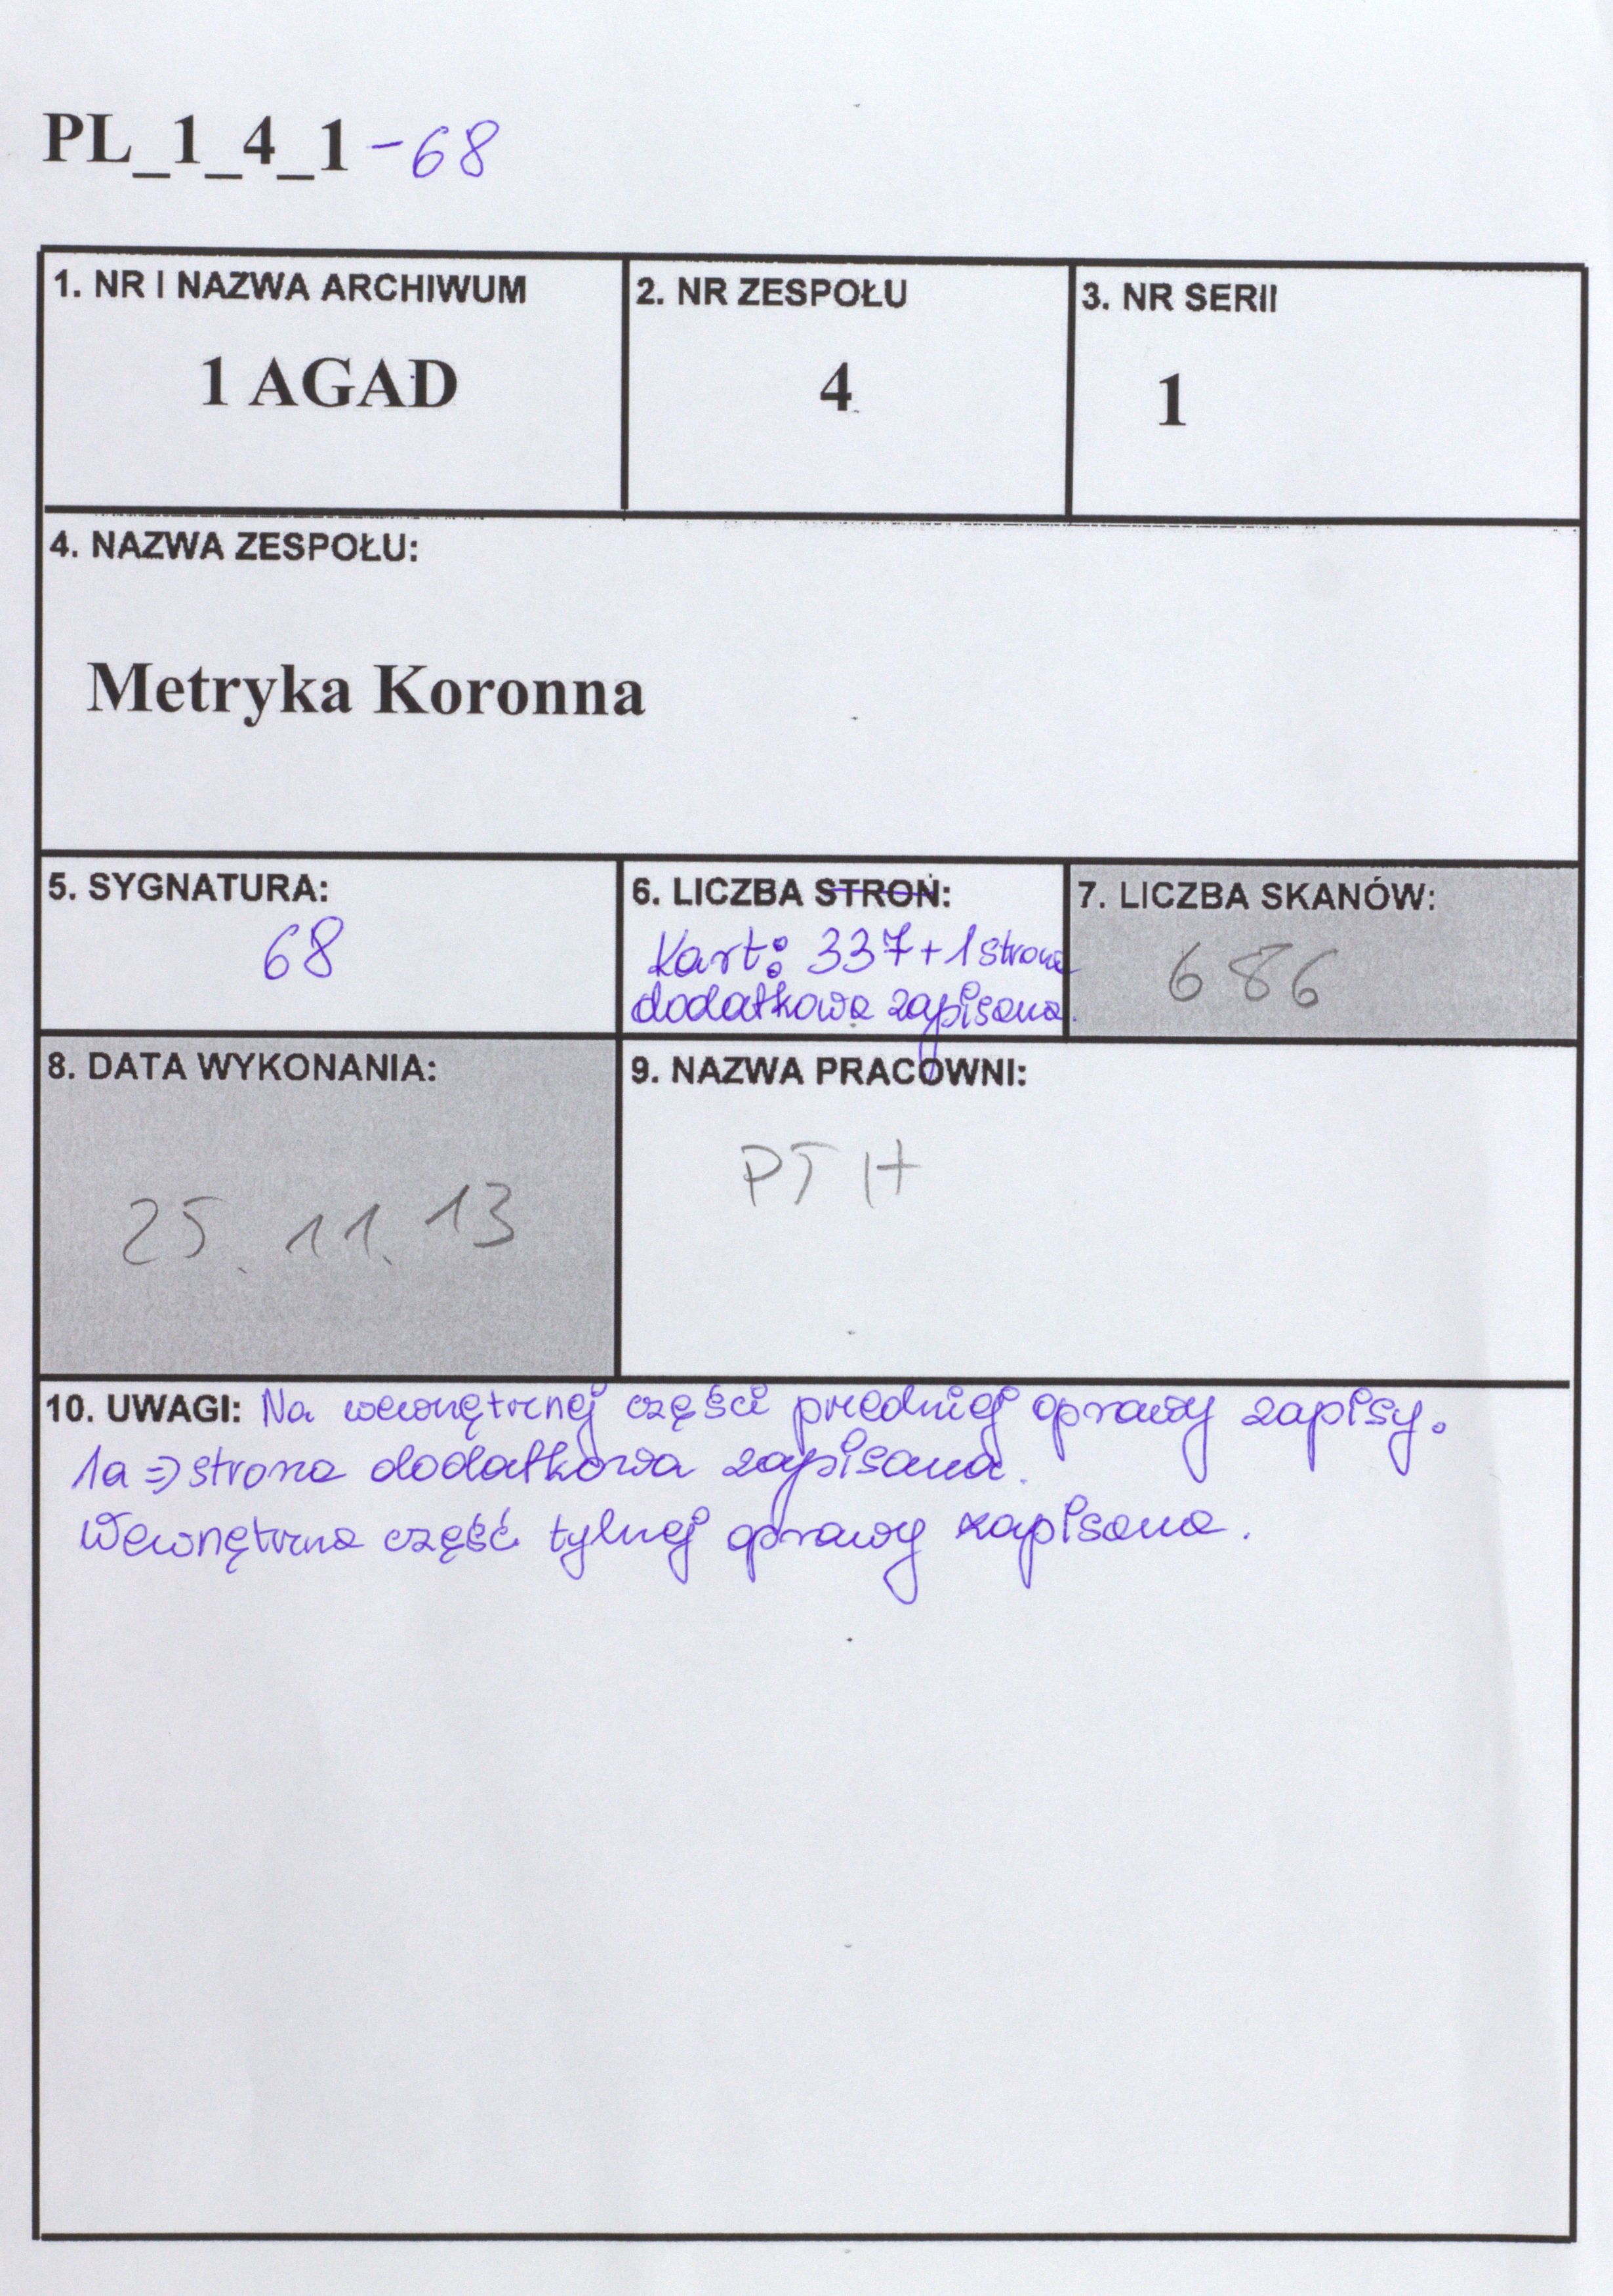 PL_1_4_1 -68
1. NR I NAZWA ARCHIWUM
1 AGAD
2. NR ZESPOŁU
4
3. NR SERII
1
4. NAZWA ZESPOŁU:
Metryka Koronna
5. SYGNATURA:
68
6. LICZBA STRON:
Kart: 337 + 1 strona
dodatkowa zapisana.
7. LICZBA SKANÓW:
686
8. DATA WYKONANIA:
25. 11. 13
9. NAZWA PRACOWNI:
PTH
10. UWAGI: Na wewnętrznej części przedniej oprawy zapisy.
1a => strona dodatkowa zapisana.
Wewnętrzna część tylnej oprawy zapisana.